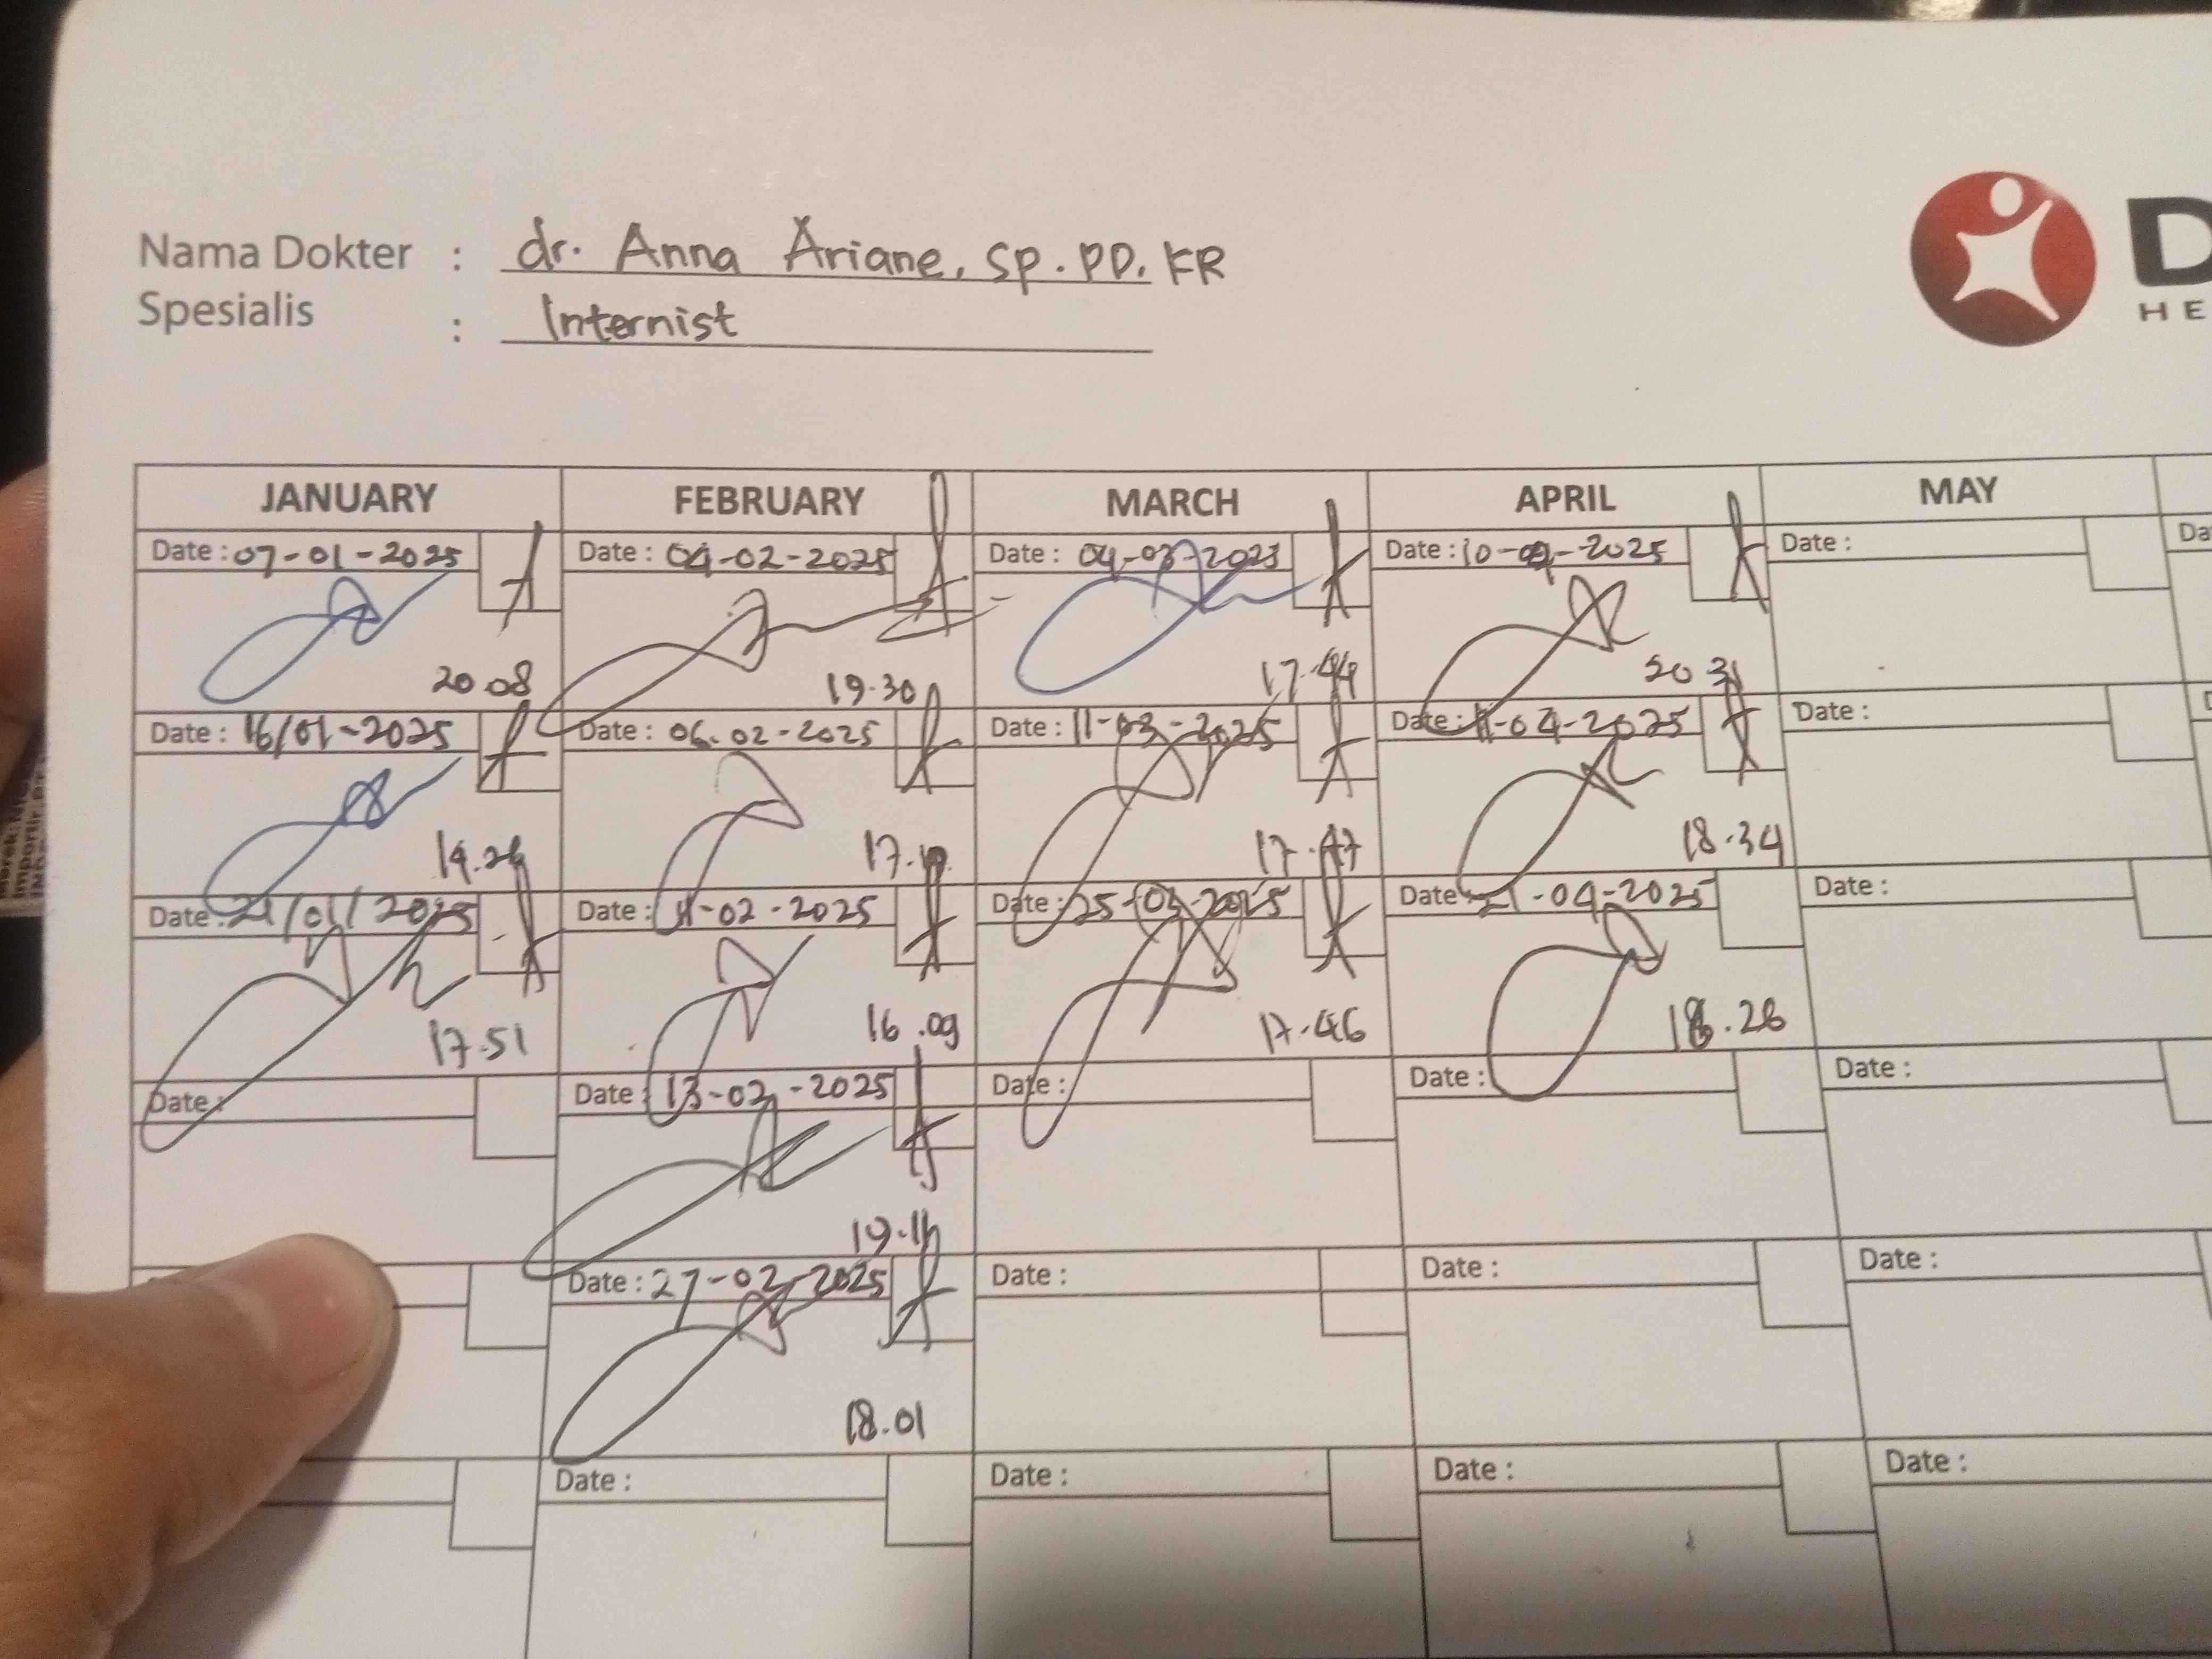 Nama Dokter : dr. Anna Ariane, Sp.PD. KR
Spesialis : Internist
D
HE
JANUARY FEBRUARY MARCH APRIL MAY
Date : 07-01-2025 Date : 04-02-2025 Date : 04-03-2025 Date : 10-04-2025 Date : Da
20.08 19.30 17.44 20 31
Date : 16/01-2025 Date : 06.02-2025 Date : 11-03-2025 Date : 11-04-2025 Date :
17.47 18.34
Date : 21/01/2025 Date : 11-02-2025 Date : 25-03-2025 Date : 21-04-2025 Date :
17.51 16.09 17.46 18.28
Date : Date : 13-02-2025 Date : Date : Date :
19.11
Date : 27-02-2025 Date : Date : Date :
18.01
Date : Date : Date : Date :